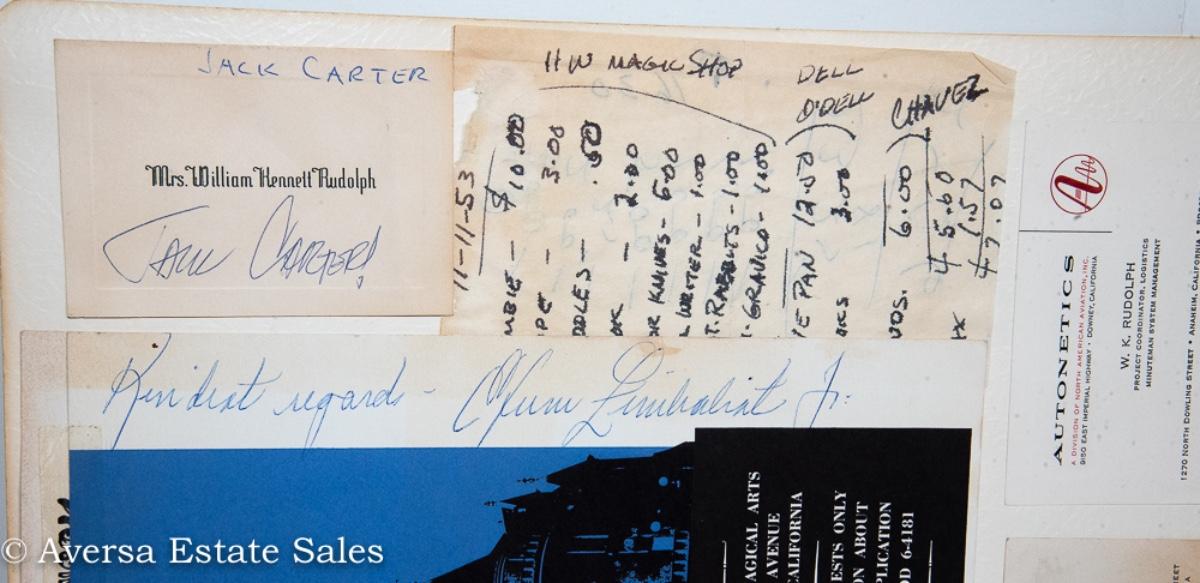 JACK CARTER
Mrs. William Kennett Rudolph
JACK CARTER
HW MAGIC SHOP
11-11-53
MBIE - $10.00
PE - 3.00
DDLES - .50
OK - 2.00
OR KNIVES - 6.00
WRITER - 1.00
T. RABBITS - 1.00
. GRAVICO - 1.00
DELL
O'DELL
E PAN 12.50
OKS 3.00
CHAVEZ
VDS. 6.00
45.60
1.57
47.07
Kindest regards -
Zimbalist Jr.
AGICAL ARTS
AVENUE
CALIFORNIA
ESTS ONLY
ON ABOUT
PLICATION
OD 6-4181
AUTONETICS
A DIVISION OF NORTH AMERICAN AVIATION, INC.
9150 EAST IMPERIAL HIGHWAY • DOWNEY, CALIFORNIA
W. K. RUDOLPH
PROJECT COORDINATOR, LOGISTICS
MINUTEMAN SYSTEM MANAGEMENT
1270 NORTH DOWLING STREET • ANAHEIM, CALIFORNIA
© Aversa Estate Sales